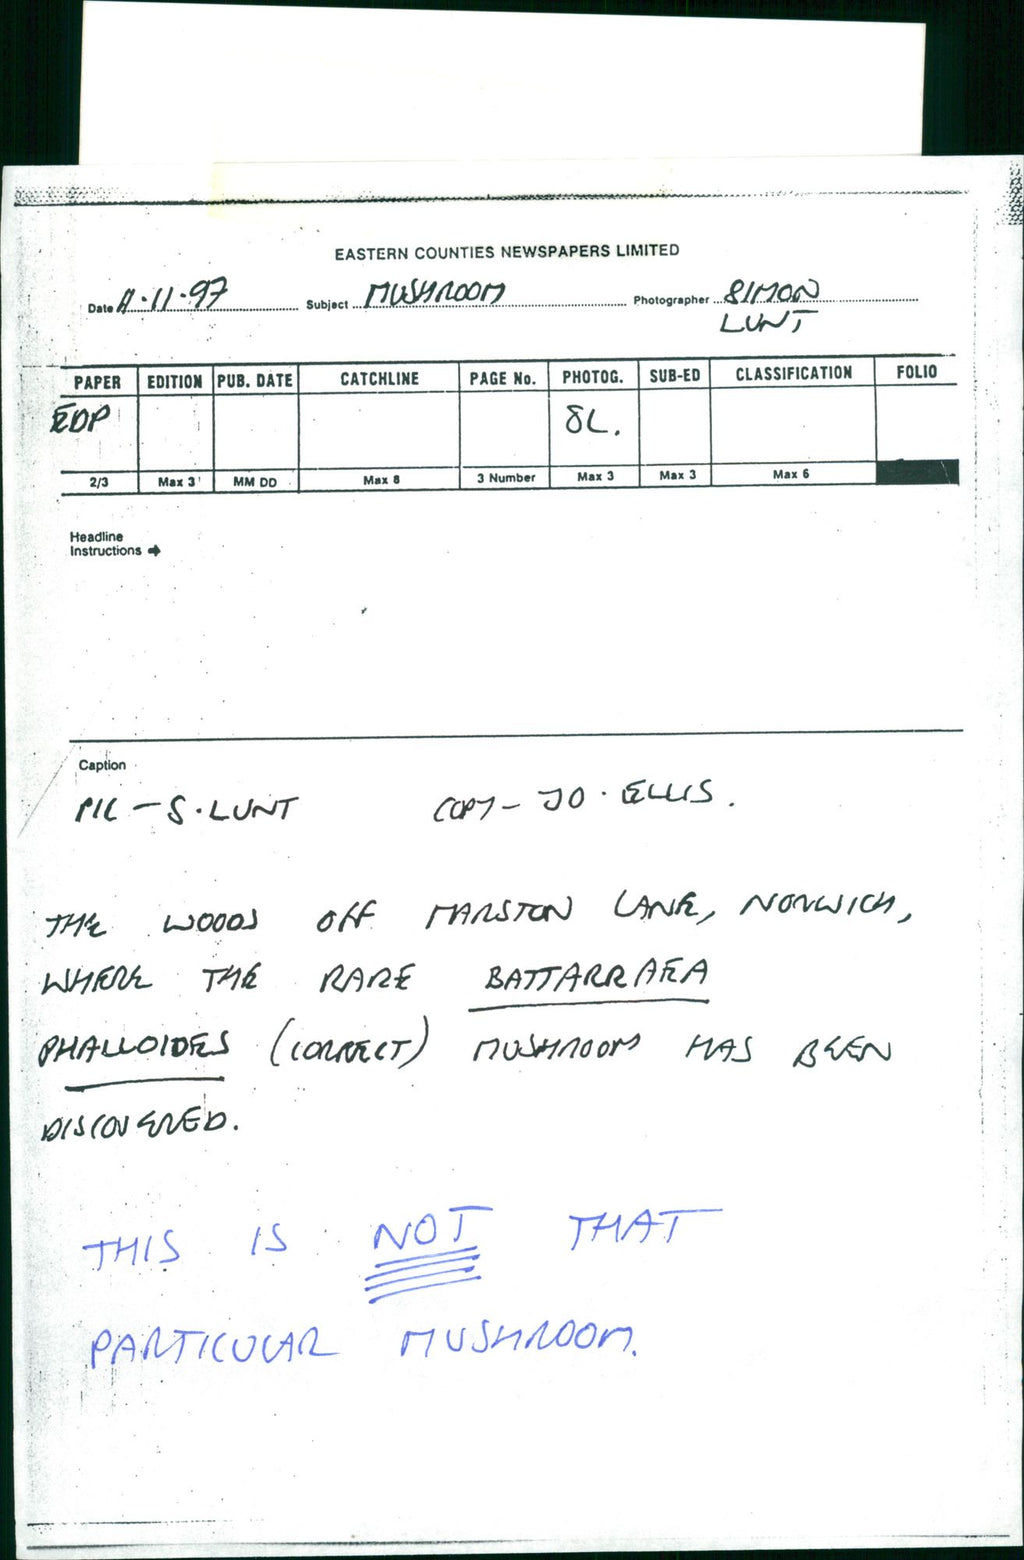 EASTERN COUNTIES NEWSPAPERS LIMITED
Date 11·11·97 Subject MUSHROOM Photographer SIMON
LUNT
PAPER EDITION PUB. DATE CATCHLINE PAGE No. PHOTOG. SUB-ED CLASSIFICATION FOLIO
EDP SL.
2/3 Max 3 MM DD Max 8 3 Number Max 3 Max 3 Max 6
Headline
Instructions →
Caption
PIC - S. LUNT COPY - JO. ELLIS.
THE WOODS OFF MARSTON LANE, NORWICH,
WHERE THE RARE BATTARRAEA
PHALLOIDES (CORRECT) MUSHROOM HAS BEEN
DISCOVERED.
THIS IS NOT THAT
PARTICULAR MUSHROOM.